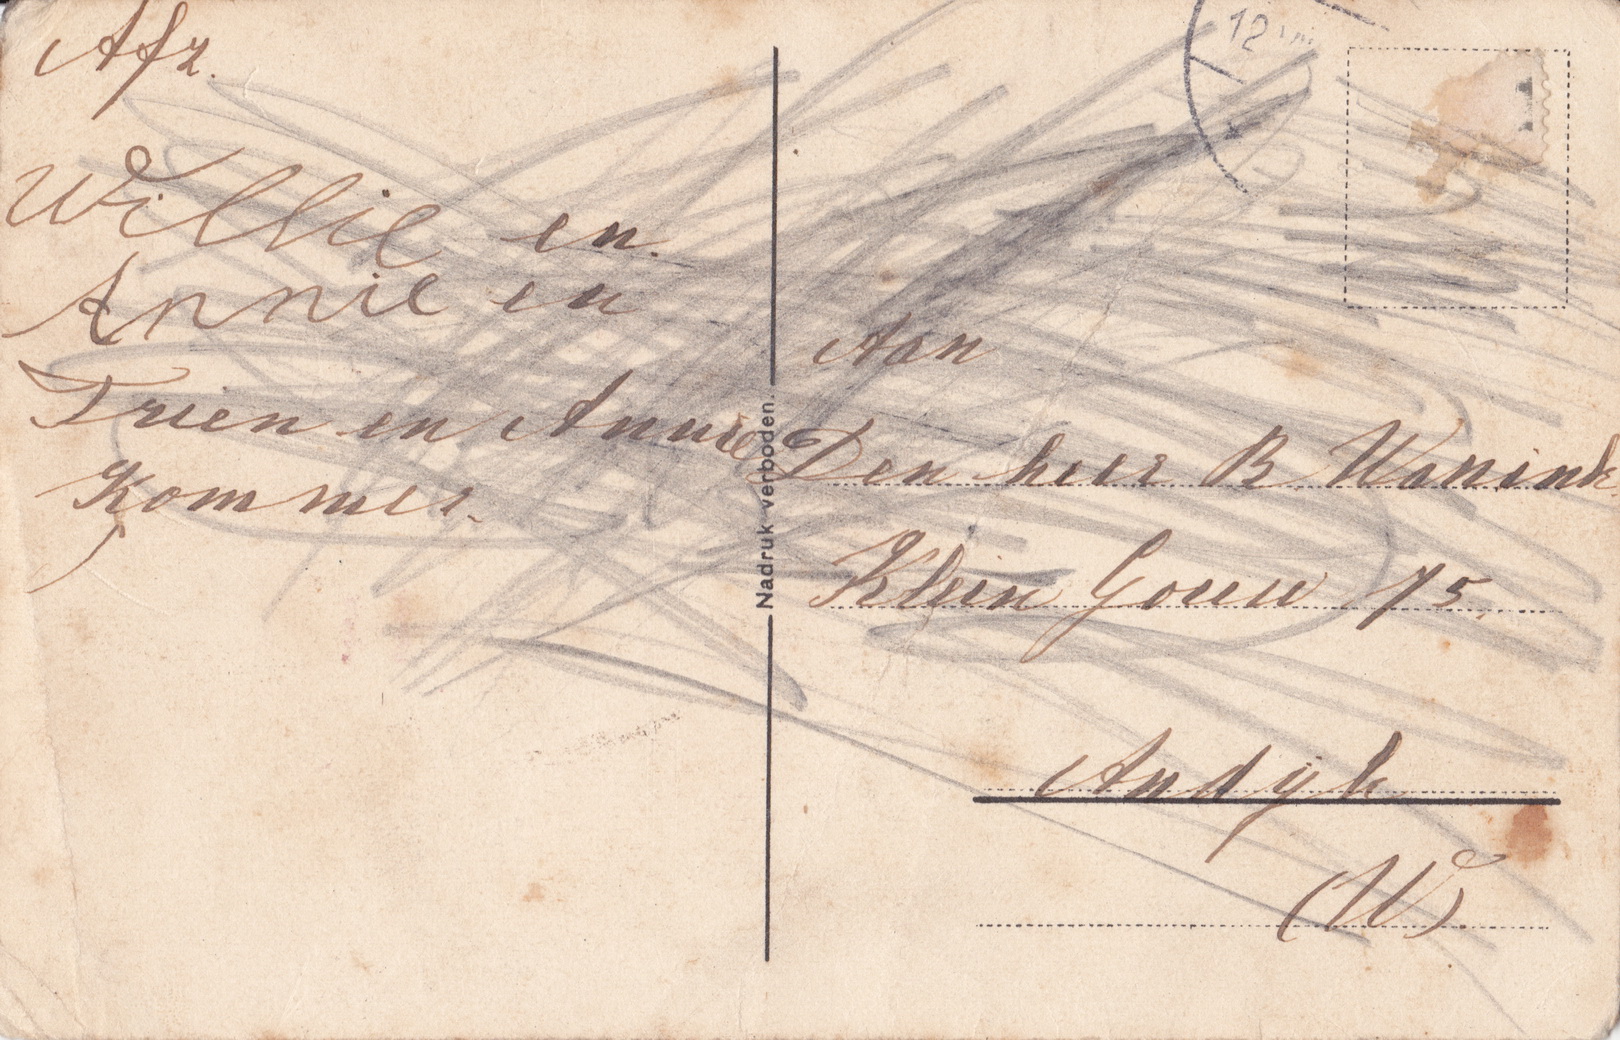 Afz.
Willie en
Annie en
Trien en Annie
Kommer.
Nadruk verboden.
12
Aan
Den heer B Wanink
Klein Gouw 75
Andyk
(W)